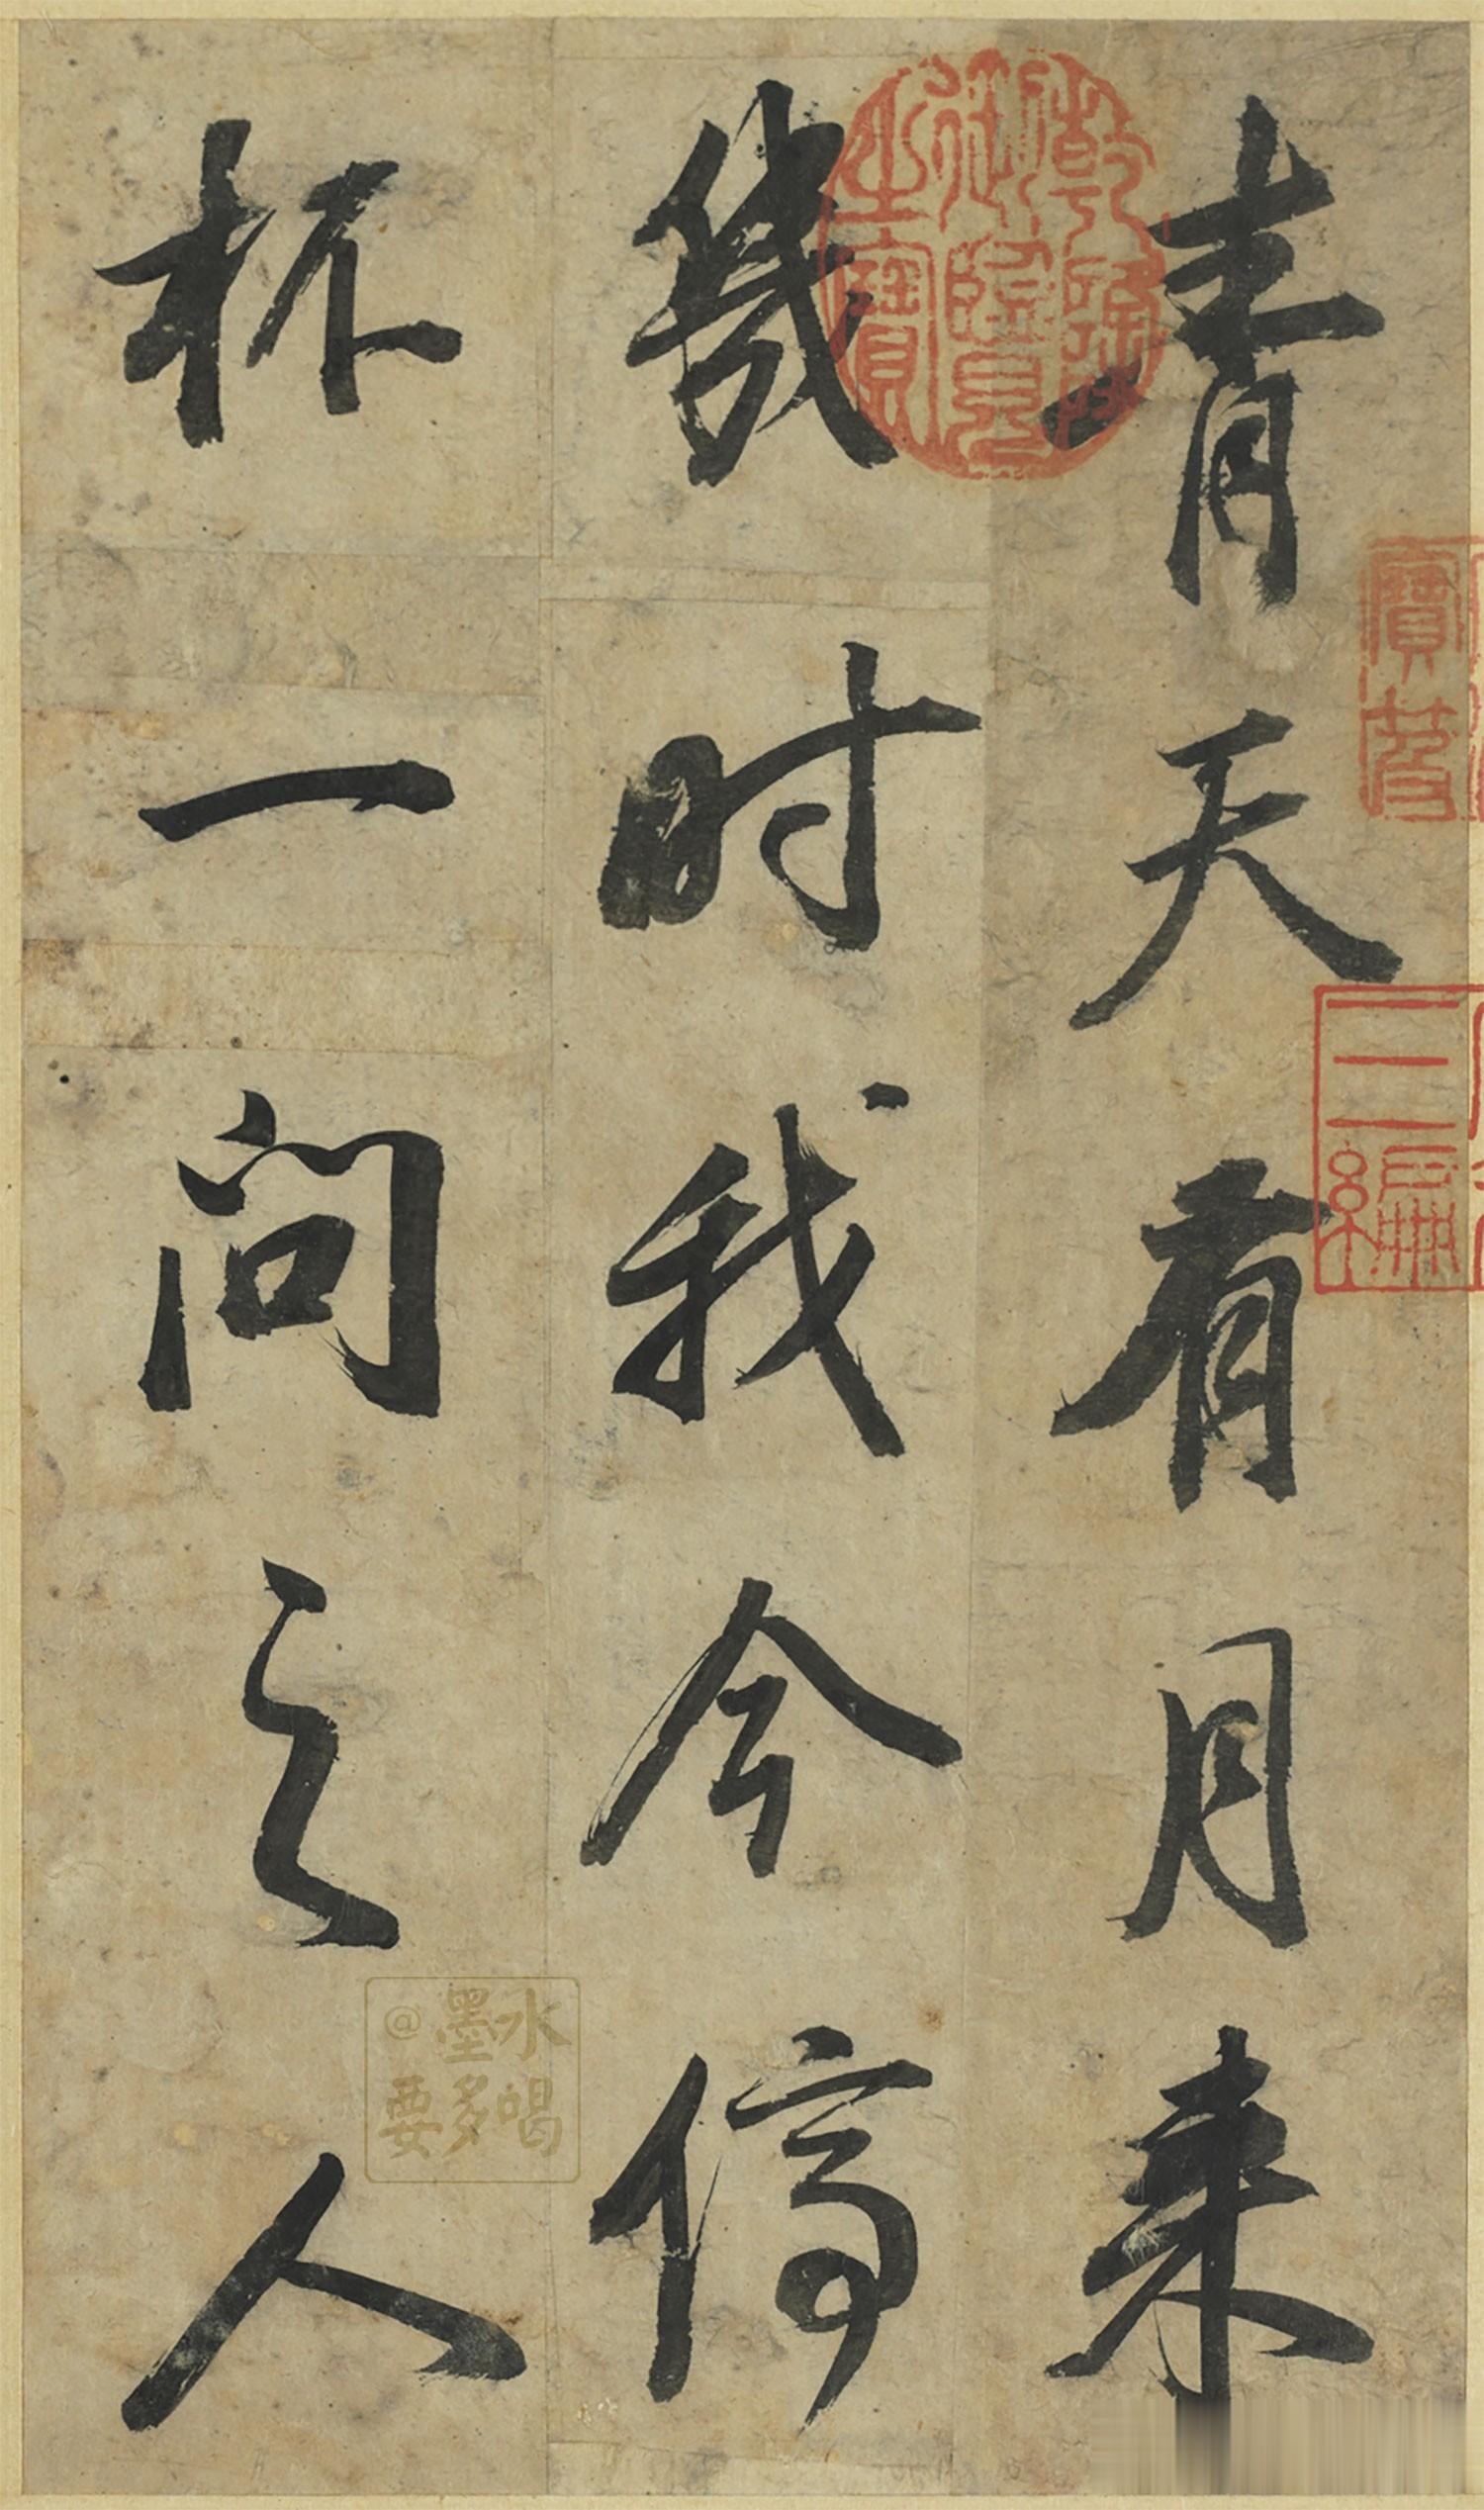 青天有月来
幾时我今停
杯一问之人
乾隆御覽之寶
寶笈
三編
@墨水
要多喝